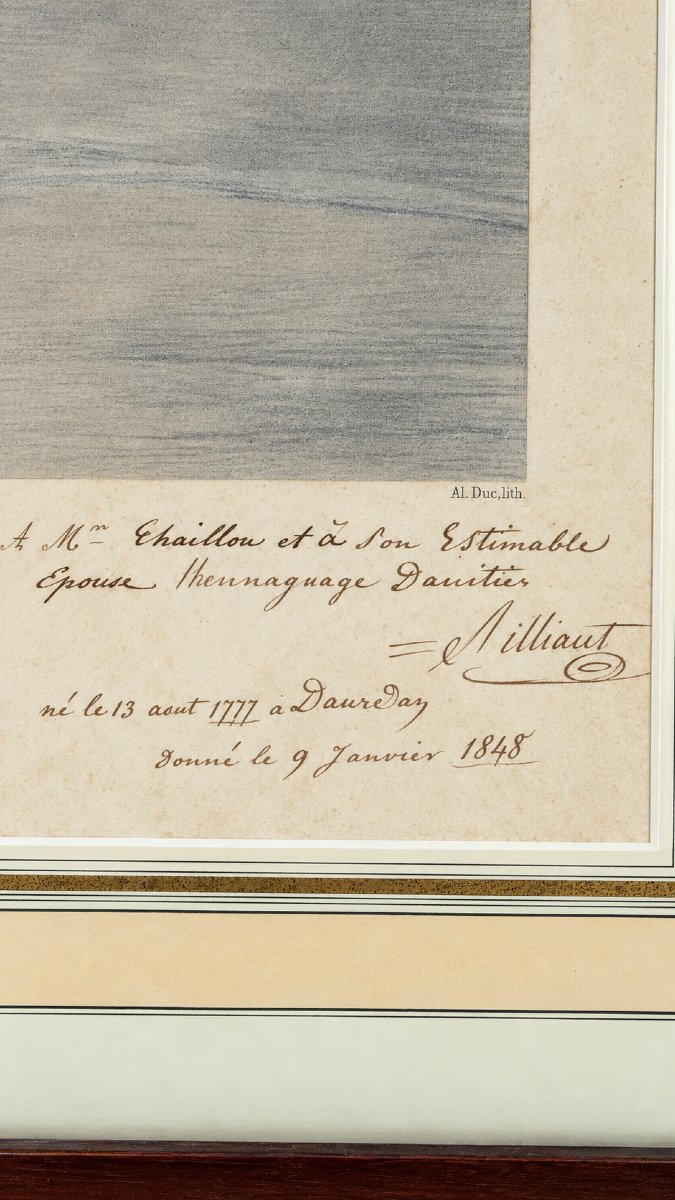 Al. Duc, lith.
A Mʳ Chaillou et à Son Estimable
Epouse
né le 13 aout 1777 a
Donné le 9 Janvier 1848